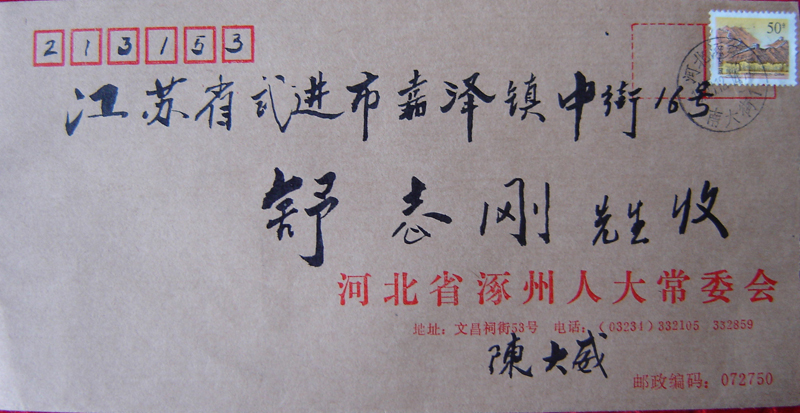 213153
50分
江苏省武进市嘉泽镇中街16号
舒志刚 先生收
河北省涿州人大常委会
地址：文昌祠街53号 电话：（03234）332105 332859
陳大威
邮政编码：072750